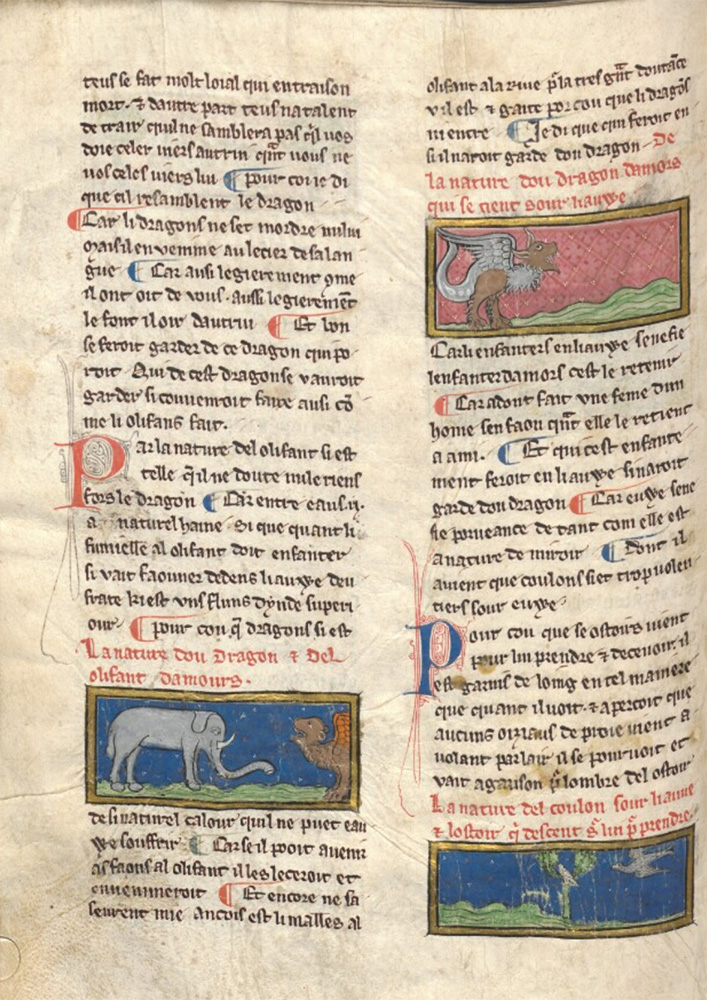 teus se fait molt loial qui en traison
mort. & dautre part teus na talent
de trair quil ne samblera pas q̃l vos
doie celer viers autrui q̃nt vous ne
vos celes viers lui ¶ pour cou ie di
que cil resamblent le dragon
¶ Car li dragons ne set mordre nului
Mais il en vemme au lecier de sa lan
gue ¶ Car ausi legierement 9me
il ont oit de vous. aussi legieremẽt
le font il oir dautrui ¶ Et bon
se feroit garder de ce dragon qui po
roit Qui de cest dragon se vauroit
garder si couuenroit faire ausi cõ
me li olifans fait.
Par la nature del olifant si est
telle q̃ il ne doute nule riens
fors le dragon ¶ Car entre eaus .ii.
a naturel haine Si que quant li
fumielle al olifant doit enfanter
si vait faouner dedens liauwe deu
frate ki est vns fluns dynde superi
our. ¶ pour cou q̃ dragons si est
La nature dou Dragon & del
olifant damours.
de si naturel calour quil ne puet eau
we souffrir ¶ Car se il pooit auenir
as faons al olifant il les leceroit et
enuenimeroit ¶ Et encore ne sa
seurent mie Ancois est li malles al
olifant a la riue p̃ la tres g̃nt doutãce
vil est & gaite por cou que li dragõs
ni entre ¶ Je di que qui feroit en
si il naroit garde dou dragon De
la nature dou dragon damors
qui se tient sour liauwe
Car li enfanters en liauwe senefie
lenfanter damors cest le retenir
¶ Car adont fait vne feme dun
home sen faon q̃nt elle le retient
a ami. ¶ Et qui cest enfante
ment feroit en liauwe si naroit
garde dou dragon ¶ Car euwe sene
fie porueance de tant com elle est
a nature de miroir ¶ Dont il
auient que coulons siet trop volen
tiers sour euwe
Pour cou que se ostoirs vient
pour lui prendre & deceuoir. il
est garnis de loing en tel maniere
que quant il voit. & apercoit que
aucuns oiziaus de proie vient a
volant par lair il se pouruoit et
vait a garison p̃ lombre del ostoir
La nature del coulon sour liauue
& lostoir q̃ descent s̃ lui p̃ prendre.